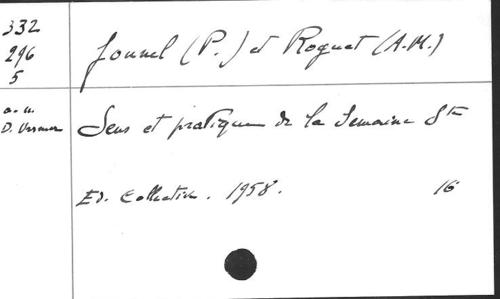 332
296
5
Jounel (P.) et Roguet (A.M.)
a. u.
D.
Sens et pratique de la Semaine Ste
Ed. Collective. 1958. 16